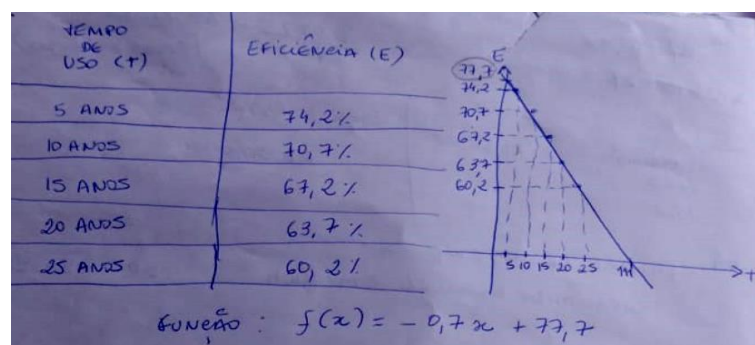 TEMPO
DE
USO (t)
EFICIÊNCIA (E)
5 ANOS
74,2%
10 ANOS
70,7%
15 ANOS
67,2%
20 ANOS
63,7%
25 ANOS
60,2%
E
77,7
74,2
70,7
67,2
63,7
60,2
5 10 15 20 25 111 t
FUNÇÃO : f(x) = -0,7x + 77,7